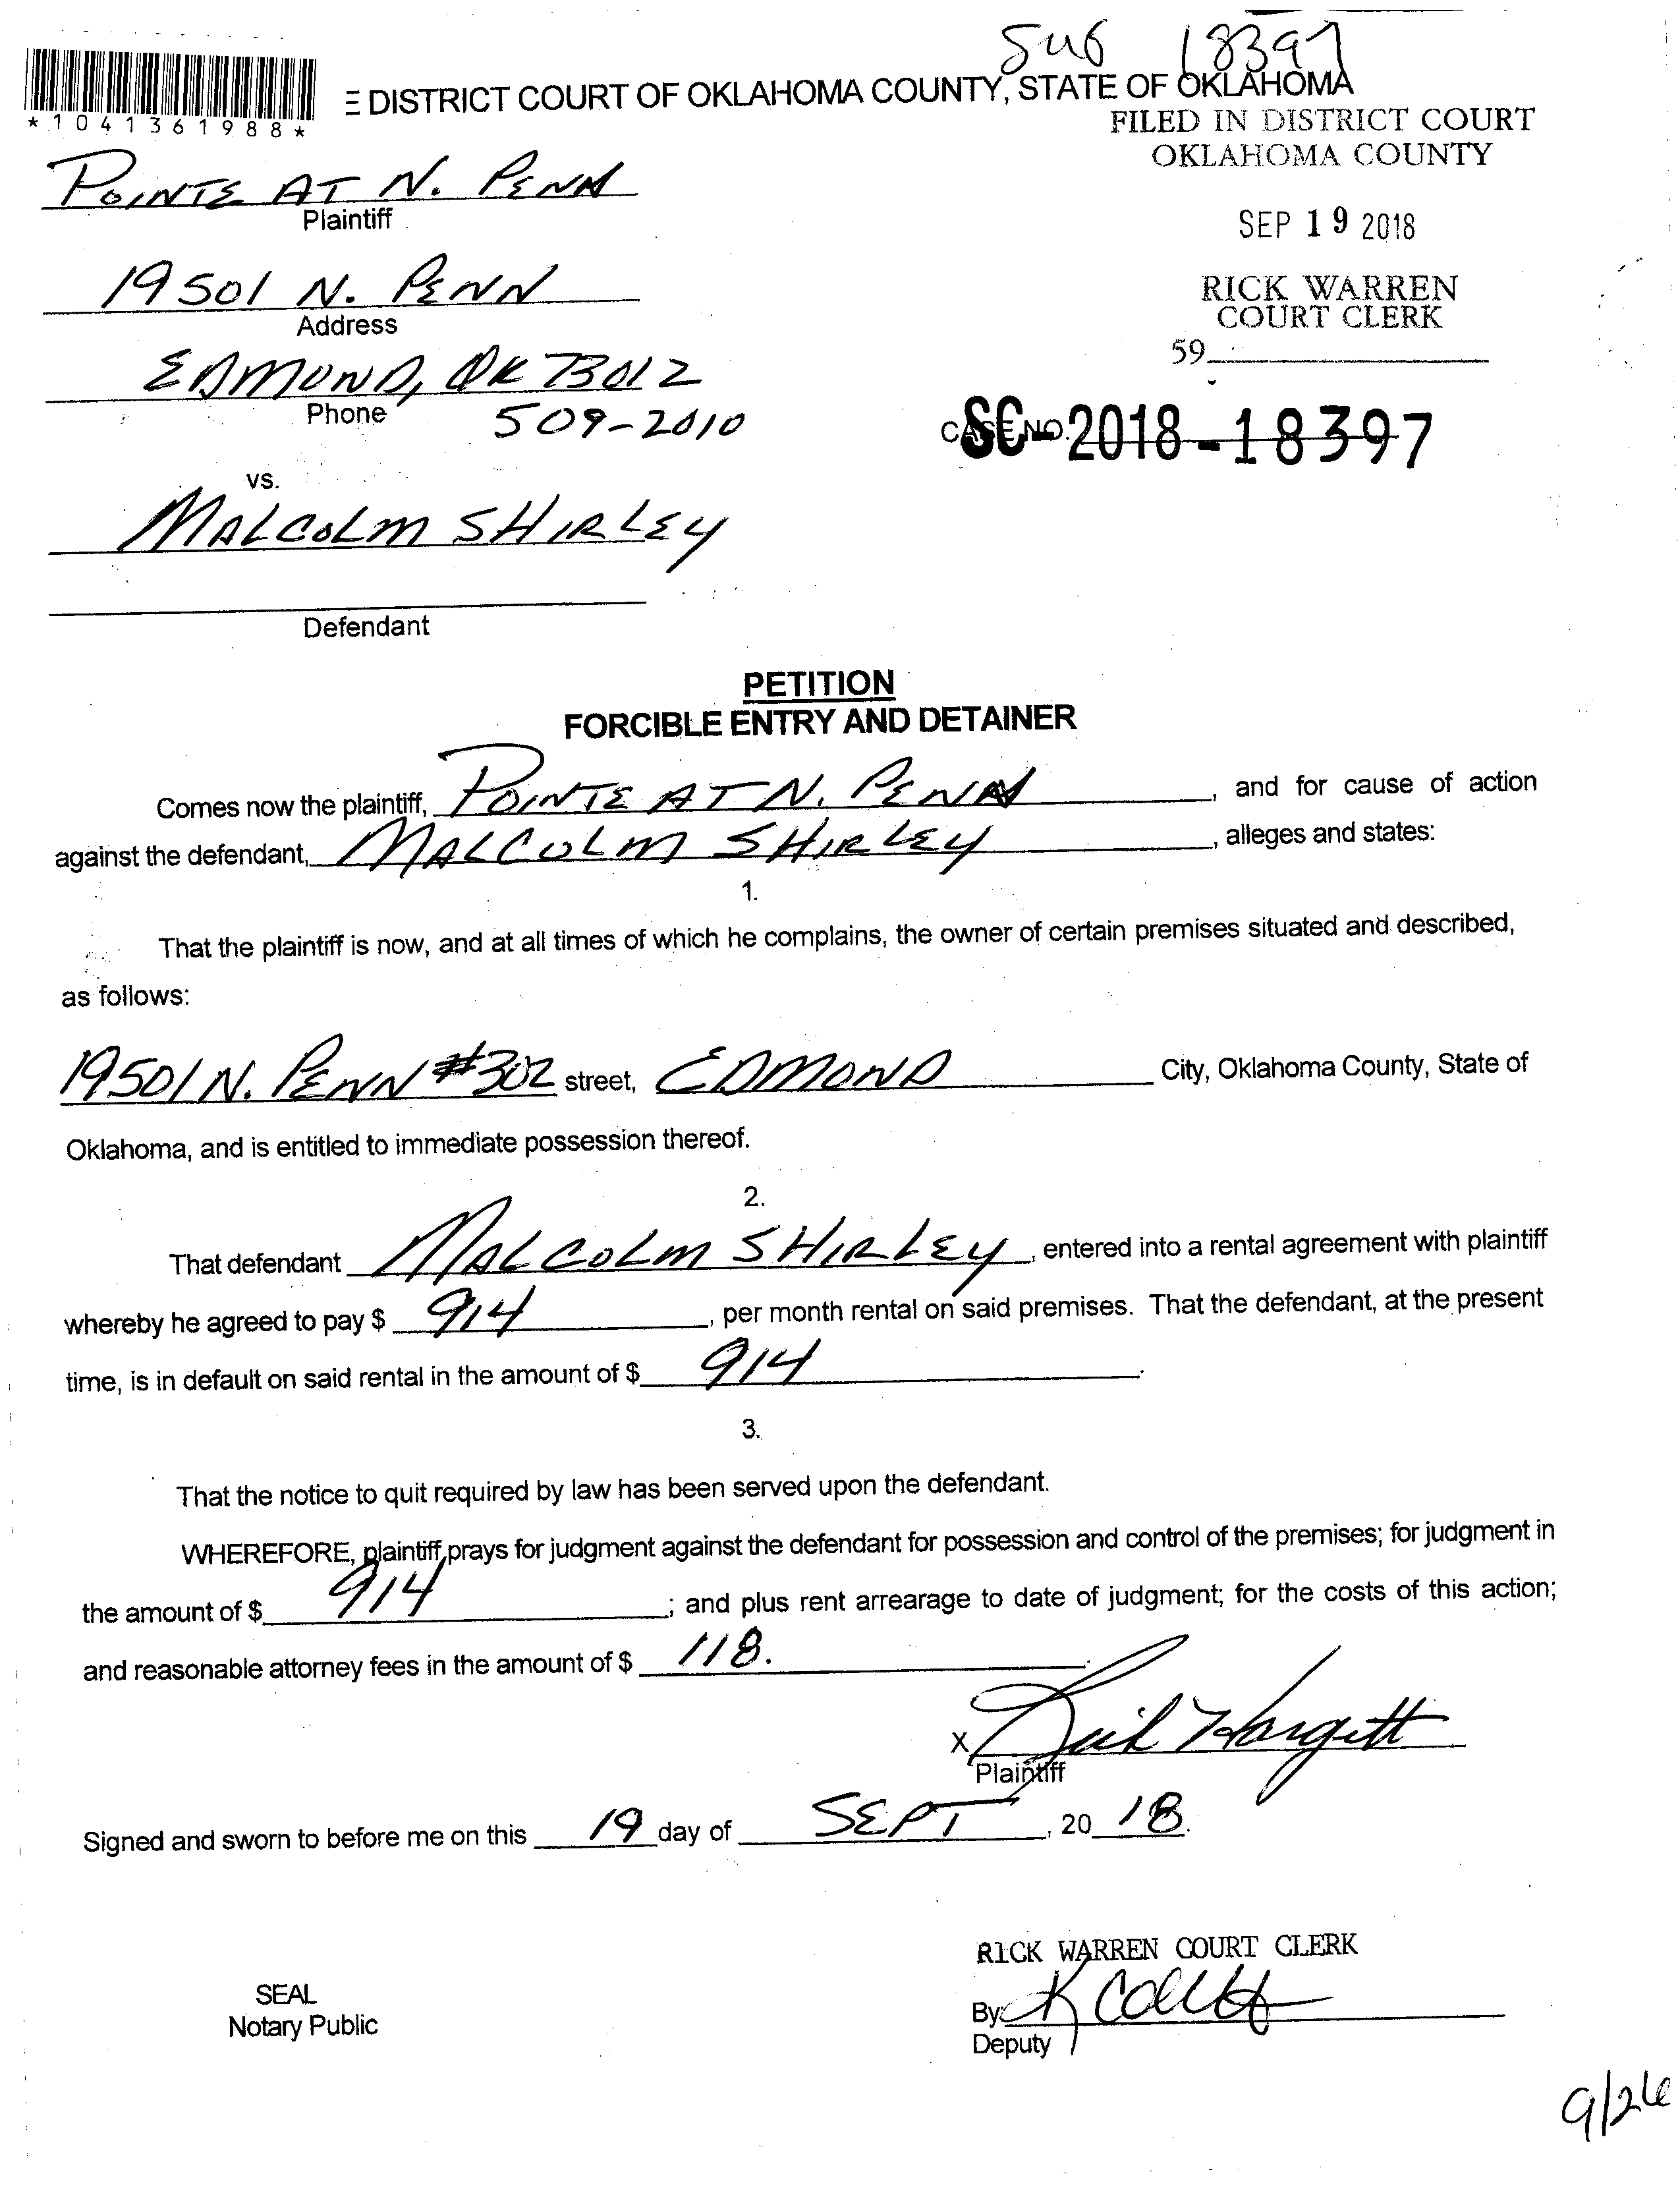 18397
*1041361988*
E DISTRICT COURT OF OKLAHOMA COUNTY, STATE OF OKLAHOMA
FILED IN DISTRICT COURT
OKLAHOMA COUNTY
POINTE AT N. PENN
Plaintiff
SEP 19 2018
19501 N. PENN
Address
RICK WARREN
COURT CLERK
59
EDMOND, OK 73012
Phone 509-2010
CASE NO. SC-2018-18397
vs.
MALCOLM SHIRLEY
Defendant
PETITION
FORCIBLE ENTRY AND DETAINER
Comes now the plaintiff, POINTE AT N. PENN, and for cause of action
against the defendant, MALCOLM SHIRLEY, alleges and states:
1.
That the plaintiff is now, and at all times of which he complains, the owner of certain premises situated and described,
as follows:
19501 N. PENN #302 street, EDMOND City, Oklahoma County, State of
Oklahoma, and is entitled to immediate possession thereof.
2.
That defendant MALCOLM SHIRLEY, entered into a rental agreement with plaintiff
whereby he agreed to pay $ 914, per month rental on said premises. That the defendant, at the present
time, is in default on said rental in the amount of $ 914.
3.
That the notice to quit required by law has been served upon the defendant.
WHEREFORE, plaintiff prays for judgment against the defendant for possession and control of the premises; for judgment in
the amount of $ 914; and plus rent arrearage to date of judgment; for the costs of this action;
and reasonable attorney fees in the amount of $ 118.
X Hargett
Plaintiff
Signed and sworn to before me on this 19 day of SEPT, 20 18.
RICK WARREN COURT CLERK
SEAL
Notary Public
By: K
Deputy
9/26